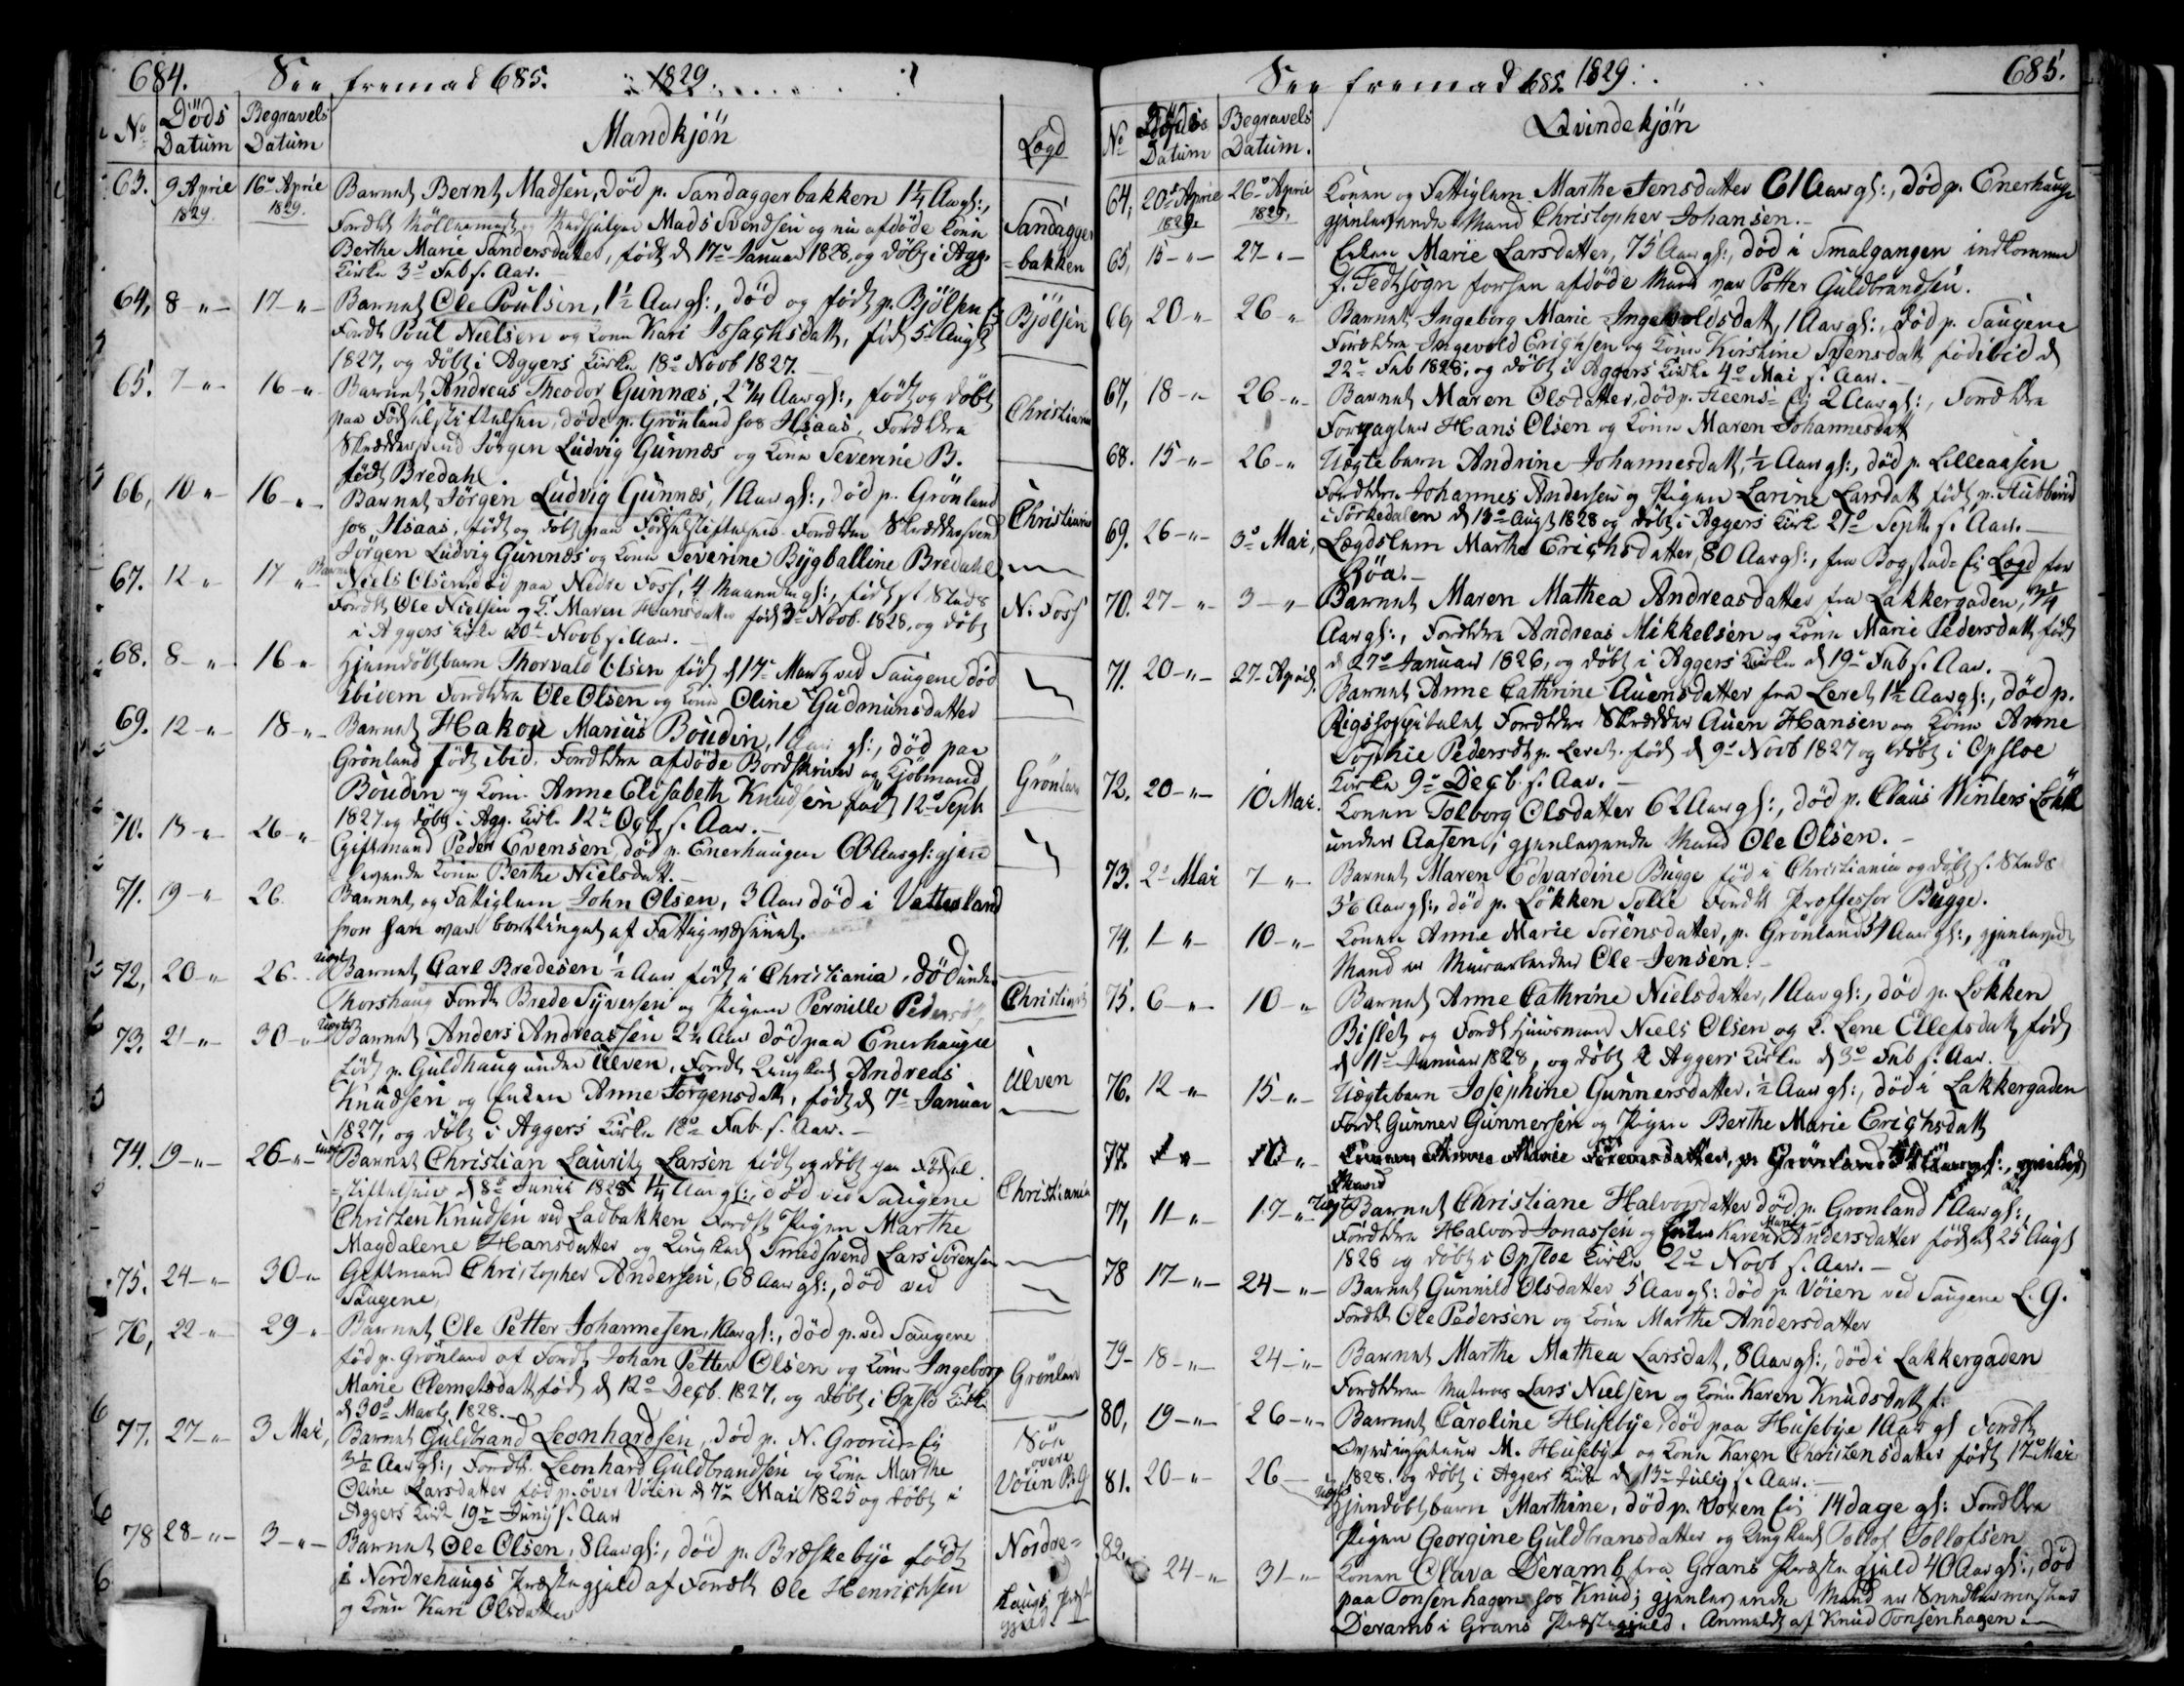 684. See fremad 685. 1829.
No Döds Datum Begravels Datum Mandkjön Lægd
63. 9 Aprie 1829. 16de Aprie 1829. Barnet Bernt Madsen, död p. Sandaggerbakken 1¼ Aar gl:,
Foreldre Möllermest. og Mads Svendsen og nu afdöde Kone Sandagger
Berthe Marie Sandersdatter, født d 17de Januar 1828, og døbt i Agg. =bakken
Kirke 3de Feb s. Aar.
64, 8 - " - 17 - " - Barnet Ole Poulsen, 1½ Aar gl:, död og født p. Bjölsen Ej Bjölsen
Foreldre Poul Nielsen og Kone Kari Issachsdatt, född 5te Augst
1827, og döbt i Aggers Kirke 18de Novb 1827.
65. 7 - " - 16 - " Barnet Andreas Theodor Gunnæs, 2¼ Aar gl:, født og döbt
paa Fødselstiftelsen, døde p. Grönland hos Ilsaas, Foreldre Christiania
Skræddersvend Jörgen Ludvig Gunnæs og Kone Severine B.
født Bredahl.
66, 10 " - 16 - " - Barnet Jörgen Ludvig Gunnæs, 1 Aar gl:, död p. Grönland
hos Ilsaas, født og döbt paa Fødselstiftelsen. Foreldre Skræddersvend Christiania
Jörgen Ludvig Gunnæs og Kone Severine Bygballine Bredahl
67. 12 " - 17 " - Barnet Niels Olsen död paa Nedre Foss, 4 Maaneder gl:, født s. Steds N. Foss
Foreldre Ole Nielsen og K. Maren Hansdatter født 3de Novb. 1828, og døbt
i Aggers Kirke 30te Novb s. Aar.
68. 8 - " - 16 " Hjemdöbtbarn Thorvald Olsen født d 17de Marts ved Saugene död
ibidem Foreldre Ole Olsen og Kone Oline Gudmunsdatter
69. 12 - " - 18 - " - Barnet Hakon Marius Boudin, 1 Aar gl:, död paa
Grönland født ibid. Foreldre afdöde Bordskriver og Kjöbmand
Boudin og Kone Anne Elisabeth Knudsen født 12te Septb Grönland
1827 og döbt i Agg. Kirke 12te Octb s. Aar.
70. 18 " 26 - " Giftmand Peder Evensen, död p. Enerhaugen 60 Aar gl: gjen
levende Kone Berthe Nielsdatt.
71. 19 - " 26. Barnet og Fattiglem John Olsen, 3 Aar död i Vatterland
hvor han var bortlinget af Fattigvæsenet.
72, 20 - " 26. Uægt Barnet Carl Bredesen ½ Aar født i Christiania, död under
Thorshaug Foreldre Brede Syversen og Pigen Pernille Pedersdt Christiania
73. 21 - " - 30 - " Uægte Barnet Anders Andreassen 2¼ Aar död paa Enerhaugen
født p. Guldhaug under Ulven, Foreldre Ungkarl Andreas Ulven
Knudsen og Enken Anne Jörgensdatt, født d 7de Januar
1827, og döbt i Aggers Kirke 18de Feb. s. Aar.
74. 19 - " - 26 - " - Uægt Barnet Christian Lauritz Larsen født og döbt paa Födsel
=stiftelsen d 8de Junii 1828 1¼ Aar gl:, död ved Saugene Christiania
Christen Knudsen ved Ladbakken Foreldre Pigen Marthe
Magdalene Hansdatter og Ungkarl Smedsvend Lars Sörensen
75. 24 - " - 30 - " Giftmand Christopher Andersen, 68 Aar gl:, död ved
Saugene
76, 22 - " - 29 - " Barnet Ole Petter Johannesen, 1 Aar gl:, död p. ved Saugene
född p. Grönland af Foreldre Johan Petter Olsen og Kone Ingeborg Grönland
Marie Clemetsdatt född d 12te Decb. 1827, og döbt i Opslo Kirke
d 30te Marts 1828.
77. 27 - " - 3 Mai, Barnet Guldbrand Leonhardsen, död p. N. Grorud= Ej
3½ Aar gl:, Foreldre Leonhard Guldbrandsen og Kone Marthe övere
Oline Larsdatter född p. över Vöien d 7de Mai 1825 og döbt i Vöien
Aggers Kirke 19de Junij s. Aar
78 28 - " - 3 - " - Barnet Ole Olsen, 8 Aar gl:, död p. Bræskebye født Nordre=
i Nordrehaugs Præstegjeld af Foreldre Ole Henrichsen haugs Præst
og Kone Kari Olsdatter gjeld.
See fremad 685. 1829. 685.
No Döds Datum Begravels Datum. Qvindekjön
64, 20de Aprie 1829. 26de Aprie 1829. Konen og Fattiglem Marthe Jensdatter 61 Aar gl:, död p. Enerhaugen
gjenlevende Mand Christopher Johansen.
65, 15 - " - 27 - " - Enken Marie Larsdatter, 75 Aar gl:, död i Smalgangen indkommen
f. Fedtsogn forhen afdöde Mand var Petter Guldbrandsen.
66, 20 - " 26 " Barnet Ingeborg Marie Ingevoldsdatt, 1 Aar gl:, död p. Saugene
Foreldre Ingevold Erichsen og Kone Kirstine Svensdatt född ibid d
22de Feb 1828, og döbt i Aggers Kirke 4de Mai s. Aar.
67, 18 - " 26 - " Barnet Maren Olsdatter, död p. Steens= Ej 2 Aar gl:, Foreldre
Forpagter Hans Olsen og Kone Maren Johannesdatt
68. 15 - " - 26 - " Uægtebarn Andrine Johannesdatt, ½ Aar gl:, död p. Lilleaasen
Foreldre Johannes Andersen og Pigen Larine Larsdatt född p. Stubberud
i Sörkedalen d 13de Augst 1828 og döbt i Aggers Kirke 21de Septb s. Aar.
69. 26 - " - 3de Mai, Lægdslem Marthe Erichsdatter, 80 Aar gl:, fra Bogstad= Ej Lægd for
Röa.
70. 27 - " - 3 - " - Barnet Maren Mathea Andreasdatter fra Lakkergaden, 3¼
Aar gl:, Foreldre Andreas Mikkelsen og Kone Marie Pedersdatt född
d 27de Januar 1826, og döbt i Aggers Kirke d 19de Feb s. Aar.
71. 20 - " - 27 April. Barnet Anne Cathrine Auensdatter fra Leret 1½ Aar gl:, död p.
Rigshospitalet Foreldre Skrædder Auen Hansen og Kone Anne
Sophie Pedersdt p. Leret. född d 9de Novb 1827 og döbt i Opsloe
Kirke 9de Decb. s. Aar.
72. 20 - " - 10 Mai. Konen Tolborg Olsdatter 62 Aar gl:, död p. Claus Winters Lökke
under Aasen; gjenlevende Mand Ole Olsen.
73. 2de Mai 7 - " - Barnet Maren Edvardine Bugge född i Christiania og döbt s. Steds
3⅚ Aar gl:, död p. Lökken Sollie Foreldre Proffessor Bugge.
74. 1 - " - 10 - " - Konen Anne Marie Sörensdatter, p. Grönland 34 Aar gl:, gjenlevende
Mand er Murarbeider Ole Jensen.
75. 6 - " - 10 - " Barnet Anne Cathrine Nielsdatter, 1 Aar gl:, död p. Lökken
Bislet og Foreldre Huusmand Niels Olsen og K. Lene Ellefsdatt född
d 11te Januar 1828, og döbt i Aggers Kirke d 3de Feb s. Aar.
76. 12 - " 15 - " - Uægtebarn Josephine Gunnersdatter, ½ Aar gl:, död i Lakkergaden
Foreldre Gunner Gunnersen og Pigen Berthe Marie Erichsdatt
77. 1 " - 10 " - Konen Anne Marie Sörensdatter, p. Grönland 34 Aar gl:, gjenlevd
Mand
77, 11 - " - 17 - " Uægte Barnet Christiane Halvorsdatter död p. Grönland 1 Aar gl:,
Foreldre Halvord Jonassen og Enken Karen Marie Andersdatter född d 25 Augst
1828 og döbt i Opsloe Kirke 2de Novb s. Aar.
78 17 - " - 24 - " - Barnet Gunnild Olsdatter 5 Aar gl: död p. Vöien ved Saugene L. G.
Foreldre Ole Pedersen og Kone Marthe Andersdatter
79 - 18 - " - 24 - " - Barnet Marthe Mathea Larsdatt, 8 Aar gl:, död i Lakkergaden
Foreldre Matros Lars Nielsen og Kone Karen Knudsdatt
80, 19 - " - 26 - " - Barnet Caroline Husebye, död paa Husebye 1 Aar gl Foreldre
M. Husebye og Kone Karen Christensdatter født 17de Mai
1828. og döbt i Aggers Kirke d 13de Julij s. Aar.
81. 20 - " - 26 Uægte Hjemdöbtbarn Marthine, död p. Voxen Ej 14 dage gl: Foreldre
Pigen Georgine Guldbransdatter og Ungkarl Tollof Tollofsen
82. 24 - " 31 - " Konen Clava Deramb fra Grans Præstegjeld 40 Aar gl:, död
paa Tonsenhagen hos Knud; gjenlevende Mand er Snedkermester
Deramb i Grans Præstegjeld. Anmeldt af Knud Tonsenhagen